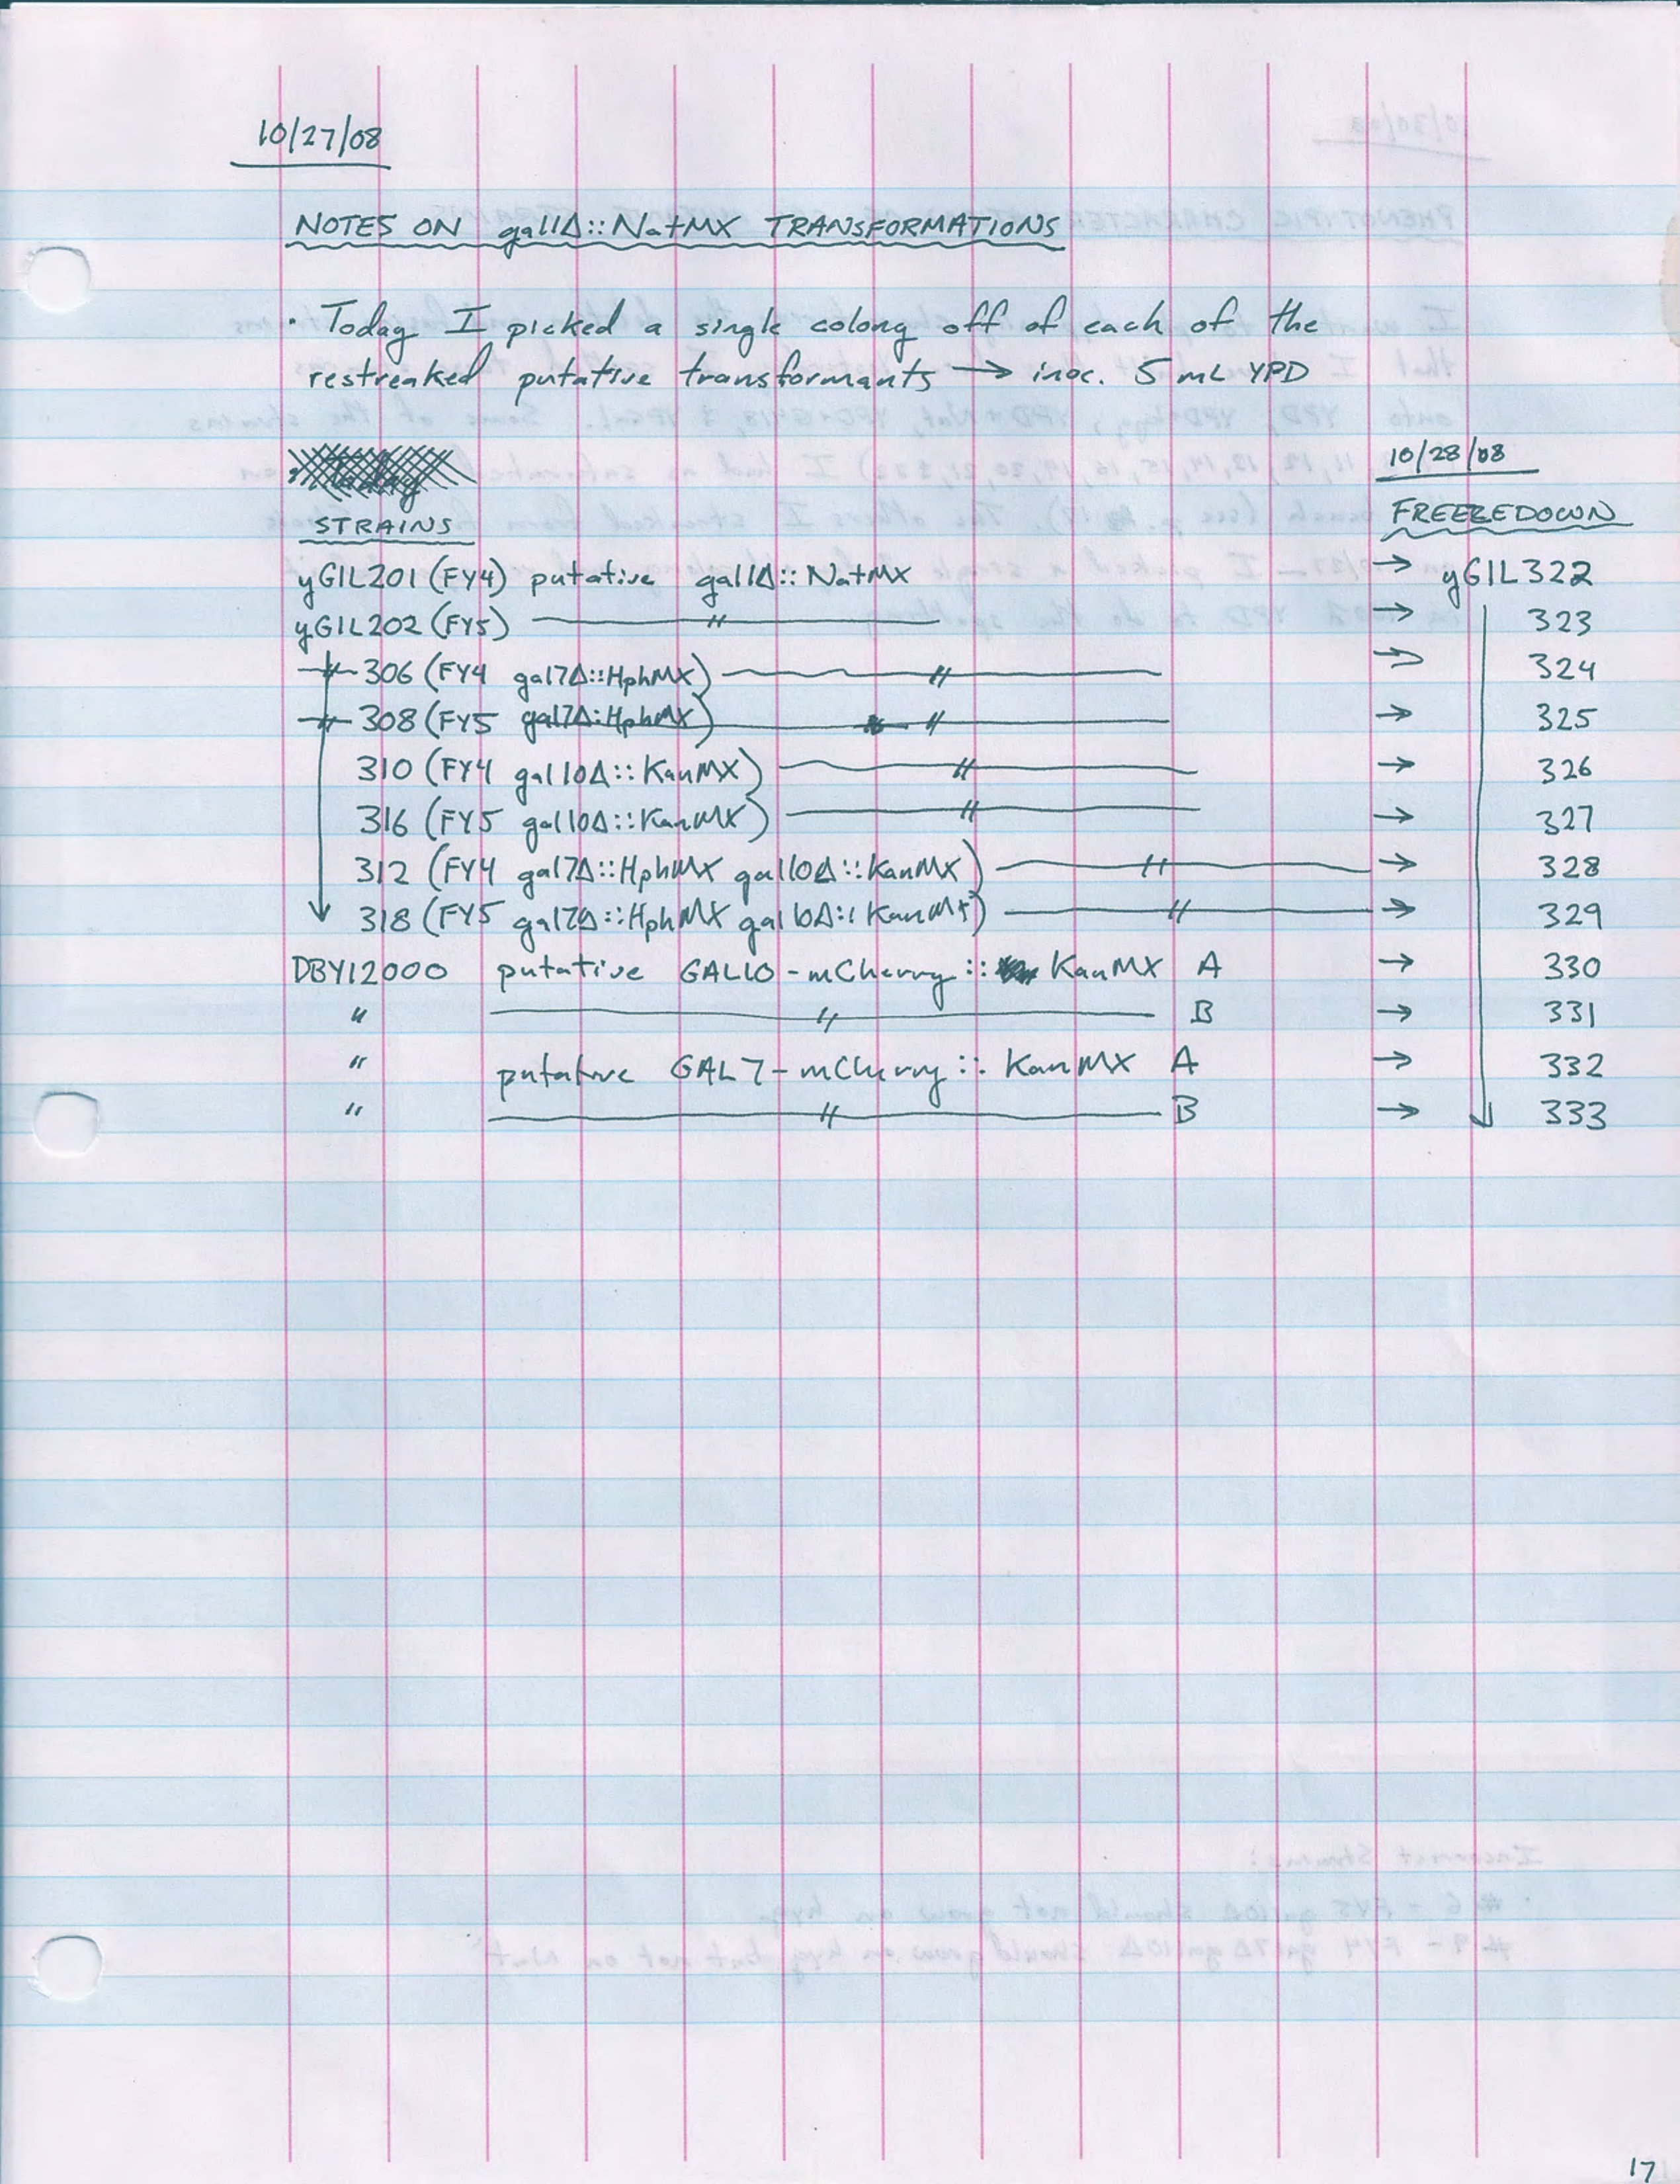 10/27/08
NOTES ON gal1Δ::NatMX TRANSFORMATIONS
· Today I picked a single colony off of each of the
restreaked putative transformants → inoc. 5 mL YPD
10/28/08
STRAINS FREEZEDOWN
yGIL201 (FY4) putative gal1Δ::NatMX → yGIL322
yGIL202 (FY5) —〃— → 323
〃 306 (FY4 gal7Δ::HphMX) —〃— → 324
〃 308 (FY5 gal7Δ::HphMX) —〃— → 325
310 (FY4 gal10Δ::KanMX) —〃— → 326
316 (FY5 gal10Δ::KanMX) —〃— → 327
312 (FY4 gal7Δ::HphMX gal10Δ::KanMX) —〃— → 328
318 (FY5 gal7Δ::HphMX gal10Δ::KanMX) —〃— → 329
DBY12000 putative GAL10-mCherry:: KanMX A → 330
〃 —〃— B → 331
〃 putative GAL7-mCherry:: KanMX A → 332
〃 —〃— B → 333
17